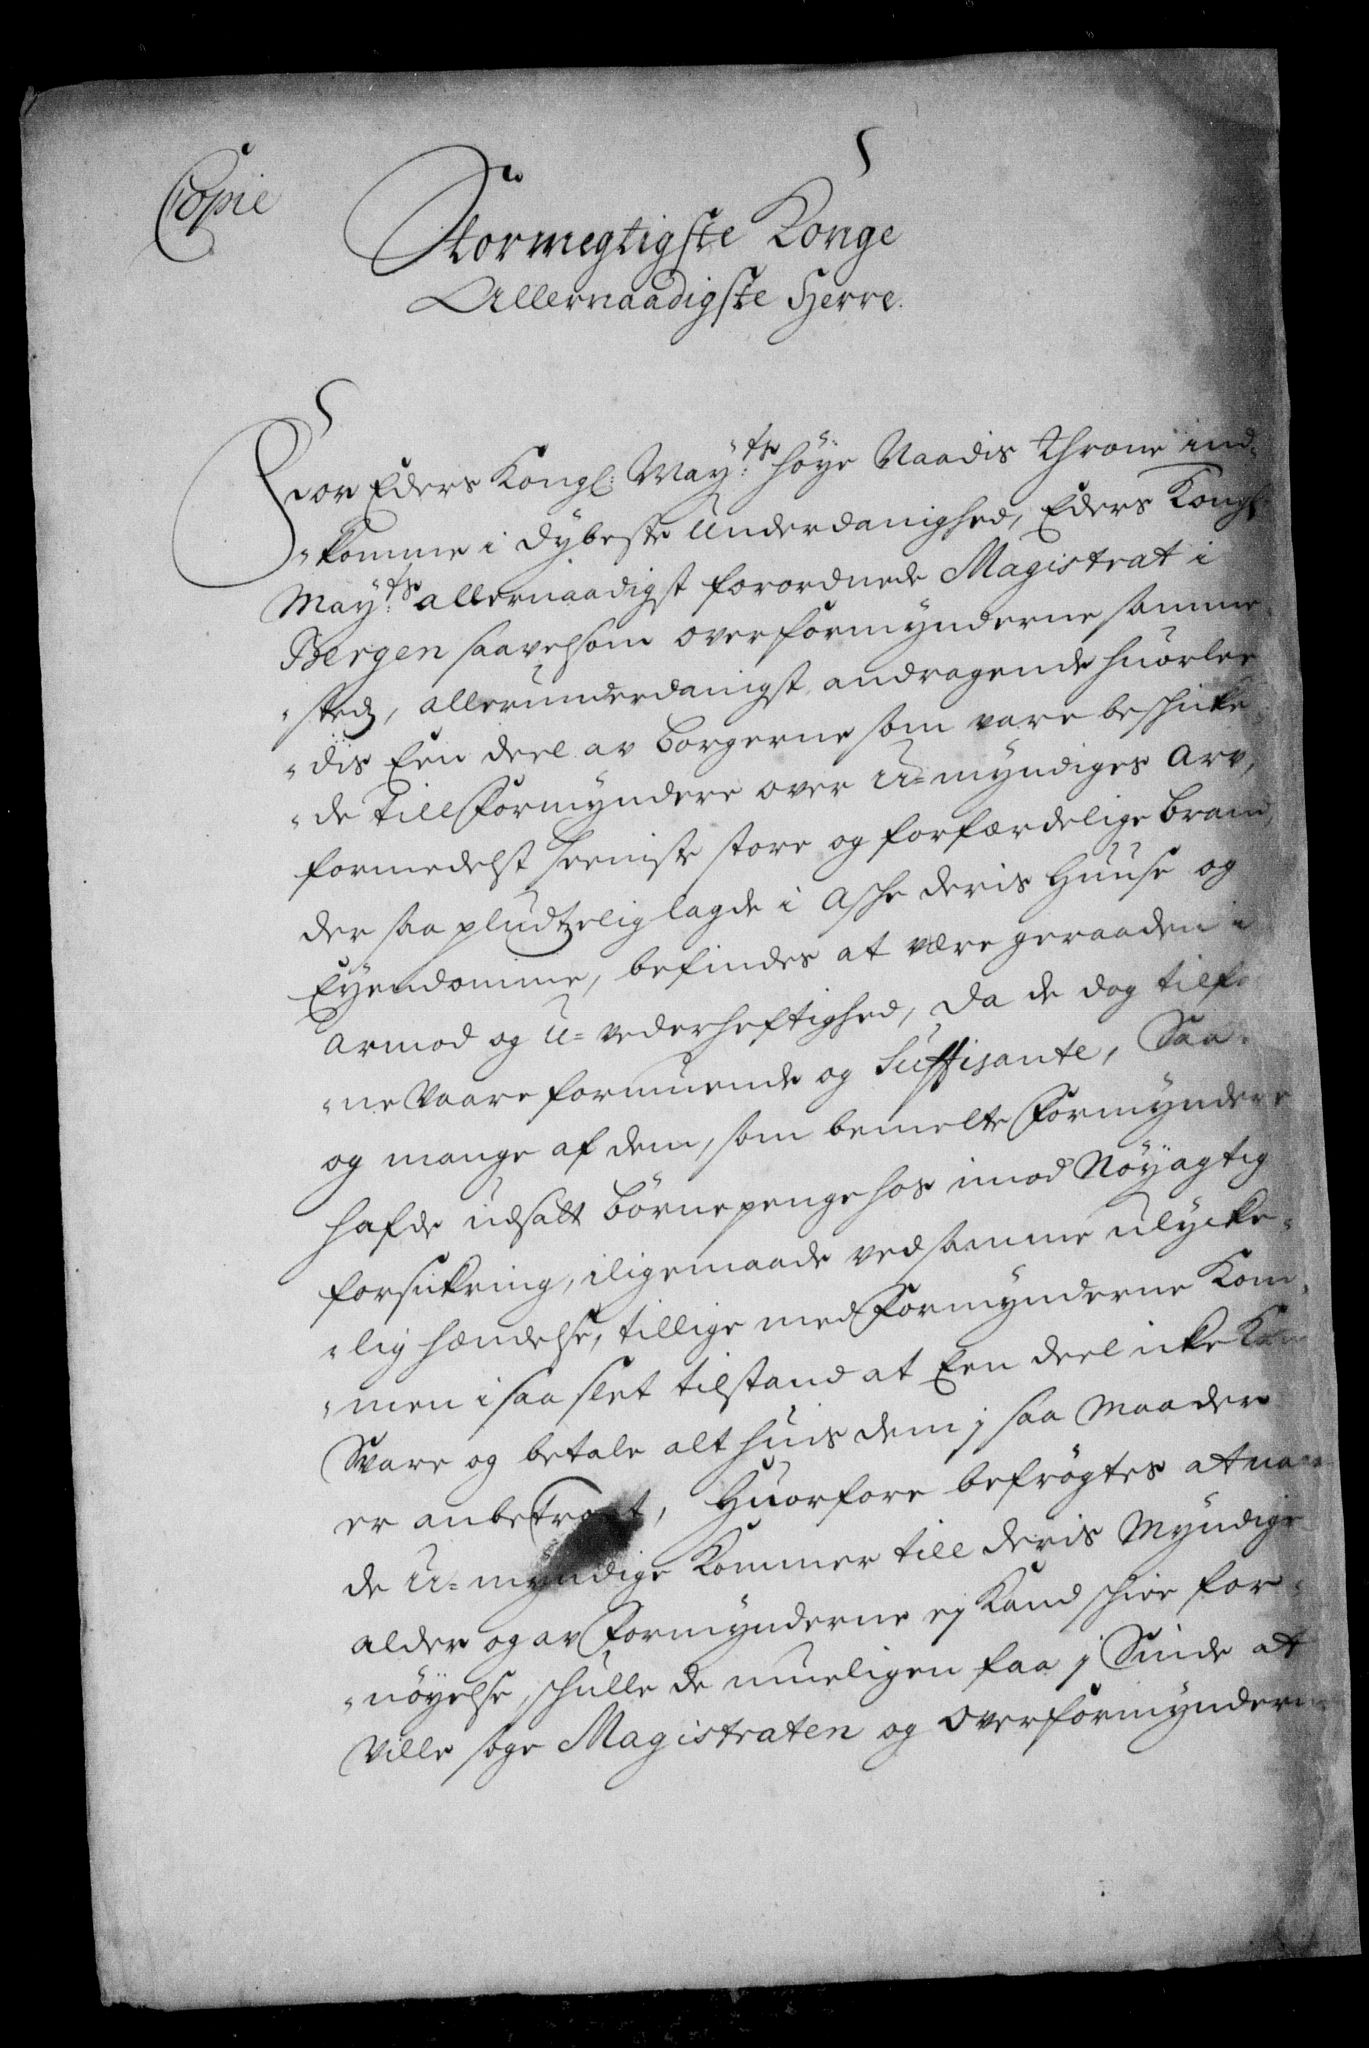 Copie
Stormegtigste Konge
Allernaadigste Herre.
For Eders Kongl: May:ts höye Naadis Throne ind-
"komme i dybeste Underdanighed, Eders Kongl:
May:ts allernaadigst forordnede Magistrat i
Bergen saavelsom Overformynderne samme-
"sted, allerunderdanigst andragende huorlee-
"dis Een deel av borgerne som vare beschicke-
"de till Formyndere over U=myndiges Arv,
formedelst seeniste store og forfærdelige brand
der saa pludtzelig lagde i Asche deris Huuse og
Eyendomme, befindes at være geraaden i
Armod og U=vederheftighed, da de dog tilfo
"ne Vaare formuende og Suffisante, Saa-
og mange af dem, som bemelte Formyndere
hafde udsatt börnepenge hos imod Nöyagtig
forsickring, iligemaade ved samme ulycke-
"lig hændelse, tillige med Formynderne Kom-
"men i saa slet tilstand at Een deel icke Kan
Svare og betale alt huis dem j saa Maader
er anbetroet, Huorfore befrögtes at naar
de U=myndige Kommer till deris Myndige
alder og av Formynderne ej Kand schee for-
"nöyelse, schulle de mueligen faa j Sinde at
Ville söge Magistraten og Overformynderne